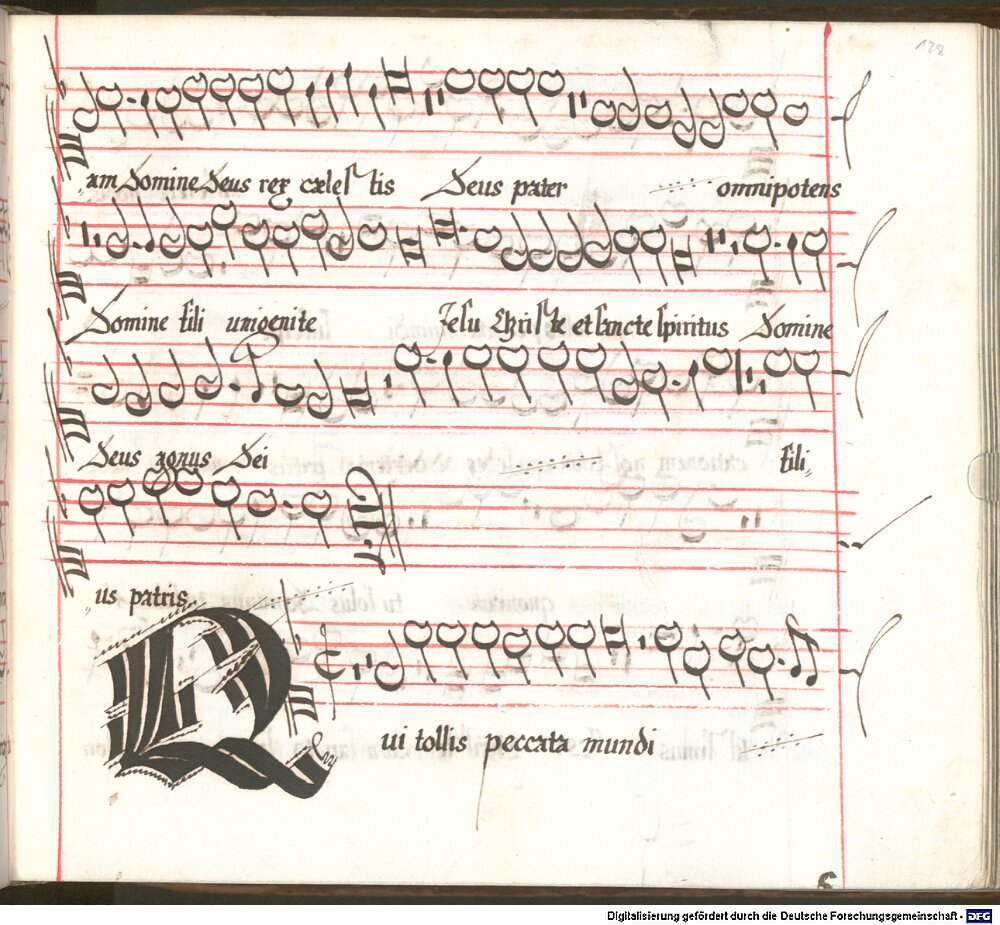 128
am Domine Deus rex cælestis Deus pater omnipotens
Domine fili unigenite Jesu Christe et sancte spiritus Domine
Deus agnus Dei fili
us patris
Qui tollis peccata mundi
Digitalisierung gefördert durch die Deutsche Forschungsgemeinschaft - DFG